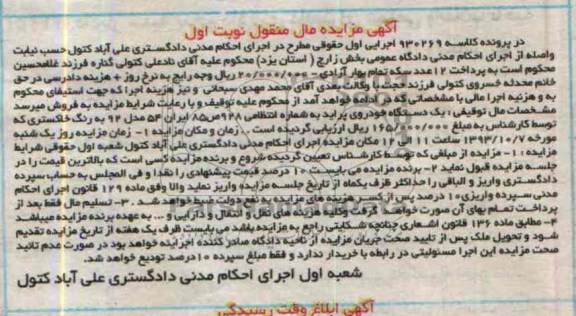 آگهی مزایده مال منقول نوبت اول
در پرونده کلاسه ۹۳۰۲۶۹ اجرایی اول حقوقی مطرح در اجرای احکام مدنی دادگستری علی آباد کتول حسب نیابت
واصله از اجرای احکام مدنی دادگاه عمومی بخش زارچ ( استان یزد) محکوم علیه آقای نادعلی کتولی گناره فرزند غلامحسین
محکوم است به پرداخت ۱۲ عدد سکه تمام بهار آزادی - ۲۰/۰۰۰/۰۰۰ ریال وجه رایج به نرخ روز + هزینه دادرسی در حق
خانم محدثه خسروی کتولی فرزند حجت با وکالت بعدی آقای محمد مهدی سبحانی و نیز هزینه اجرا که جهت استیفای محکوم
به و هزینه اجرا مالی با مشخصاتی که در ادامه خواهد آمد از محکوم علیه توقیف و با رعایت شرایط مزایده به فروش میرسد
مشخصات مال توقیفی : یک دستگاه خودروی پراید به شماره انتظامی ۹۲۸ص۸۵ ایران ۵۳ مدل ۹۲ به رنگ خاکستری که
توسط کارشناس به مبلغ ۱۶۵/۰۰۰/۰۰۰ ریال ارزیابی گردیده است . زمان و مکان مزایده ۱- زمان مزایده روز یک شنبه
مورخه ۱۳۹۳/۱۰/۷ ساعت ۱۱ الی ۱۲ مکان مزایده اجرای احکام مدنی دادگستری علی آباد کتول شعبه اول حقوقی شرایط
مزایده : ۱- مزایده از مبلغی که توسط کارشناس تعیین گردیده شروع و برنده مزایده کسی است که بالاترین قیمت را در
جلسه مزایده قبول نماید ۲- برنده مزایده می بایست ۱۰ درصد قیمت پیشنهادی را نقدا و فی المجلس به حساب سپرده
دادگستری واریز و الباقی را حداکثر ظرف یکماه از تاریخ جلسه مزایده واریز نماید والا وفق ماده ۱۲۹ قانون اجرای احکام
مدنی سپرده واریزی ۱۰ درصد پس از کسر هزینه های مزایده به نفع دولت ضبط خواهد شد . ۳- تسلیم مال فقط بعد از
پرداخت تمام بهای آن صورت خواهد گرفت وکلیه هزینه های نقل و انتقال و دارایی و ... به عهده برنده مزایده میباشد
۴- مطابق ماده ۱۳۶ قانون اشعاری چنانچه شکایتی راجع به مزایده باشد می بایست ظرف یک هفته از تاریخ مزایده تقدیم
شود و تحویل ملک پس از تایید صحت جریان مزایده از ناحیه دادگاه صادر کننده اجرائیه خواهد بود در صورت عدم تائید
صحت مزایده این اجرا مسئولیتی در رابطه با خریدار ندارد و فقط مبلغ سپرده ۱۰ درصد تودیع خواهد شد.
شعبه اول اجرای احکام مدنی دادگستری علی آباد کتول
آگهی ابلاغ وقت رسیدگی